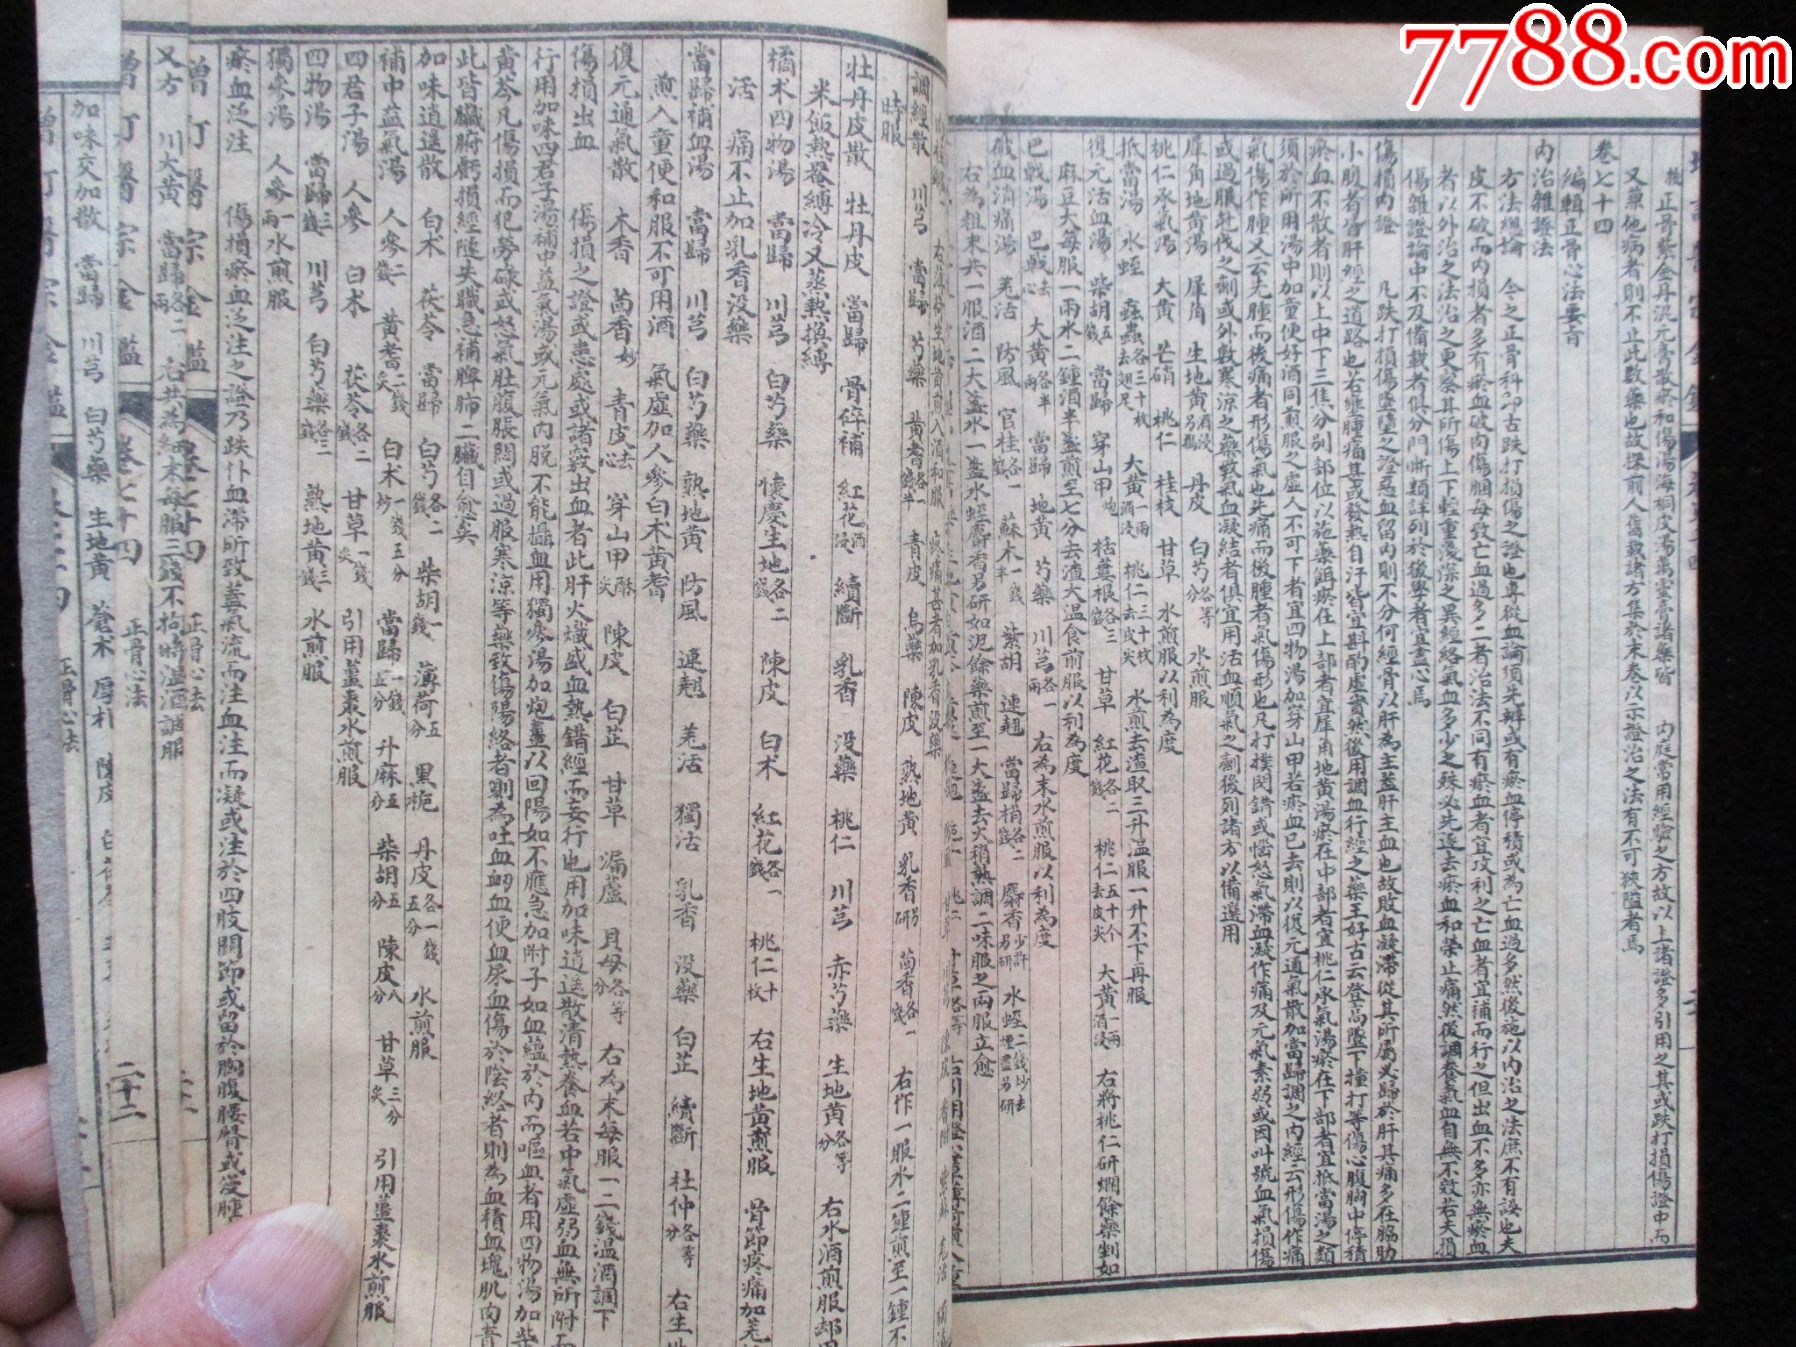 7788.com
又藥他病者則不止此數藥也故採前人舊載諸方集於末卷以示證治之法有不可狹隘者焉
卷七十四
編輯正骨心法要旨
內治雜證法
方法總論 今之正骨科即古跌打損傷之證也專從血論須先辨或有瘀血停積或為亡血過多然後施以內治之法庶不有誤也夫
皮不破而內損者多有瘀血破肉傷䐃每致亡血過多二者治法不同有瘀血者宜攻利之亡血者宜補而行之但出血不多亦無瘀血
者以外治之法治之更察其所傷上下輕重淺深之異經絡氣血多少之殊必先逐去瘀血和榮止痛然後調養氣血自無不效若夫損
傷雜證論中不及備載者俱分門晰類詳列於後學者宜盡心焉
傷損內證 凡跌打損傷墜墮之證惡血留內則不分何經皆以肝為主蓋肝主血也故敗血凝滯從其所屬必歸於肝其痛多在脇肋
小腹者皆肝經之道路也若壅腫痛甚或發熱自汗皆宜斟酌虛實然後用調血行經之藥王好古云登高墜下撞打等傷心腹胸中停積
瘀血不散者則以上中下三焦分別部位以施藥餌瘀在上部者宜犀角地黃湯瘀在中部者宜桃仁承氣湯瘀在下部者宜抵當湯之類
須於所用湯中加童便好酒同煎服之虛人不可下者宜四物湯加穿山甲若瘀血已去則以復元通氣散加當歸調之內經云形傷作痛
氣傷作腫又云先腫而後痛者形傷氣也先痛而後腫者氣傷形也凡打撲閃錯或惱怒氣滯血凝作痛及元氣素弱或因叫號血氣損傷
或過服尅伐之劑或外敷寒涼之藥致氣血凝結者俱宜用活血順氣之劑後列諸方以備選用
犀角地黃湯 犀角 生地黃酒浸另搗 丹皮 白芍各等分 水煎服
桃仁承氣湯 大黃 芒硝 桃仁 桂枝 甘草 水煎服以利為度
抵當湯 水蛭 蝱蟲各三十枚去翅足 大黃一兩酒浸 桃仁三十枚去皮尖 水煎去渣取三升溫服一升不下再服
復元活血湯 柴胡五錢 當歸 穿山甲炮 栝蔞根各三錢 甘草 紅花各二錢 桃仁五十个去皮尖 大黃一兩酒浸 右將桃仁研爛餘藥剉如
麻豆大每服一兩水二鍾酒半盞煎至七分去渣大溫食前服以利為度
巴戟湯 巴戟去心 大黃各半兩 當歸 地黃 芍藥 川芎各一兩 右為末水煎服以利為度
破血消痛湯 羌活 防風 官桂各一錢 蘇木一錢半 柴胡 連翹 當歸梢各二錢 麝香少許另研 水蛭二錢炒去煙盡另研
右為粗末共一服酒二大盞水一盞水蛭麝香另研如泥餘藥煎至一大盞去火稍熱調二味服之兩服立愈
調經散 川芎 當歸 芍藥 黃耆各一錢半 青皮 烏藥 陳皮 熟地黃 乳香另研 茴香各一錢 右作一服水二鍾煎至一鍾不
時服
牡丹皮散 牡丹皮 當歸 骨碎補 紅花酒浸 續斷 乳香 沒藥 桃仁 川芎 赤芍藥 生地黃各等分 右水酒煎服却用
米飯熱罨縛冷又蒸熱換縛
橘朮四物湯 當歸 川芎 白芍藥 懷慶生地各二錢 陳皮 白朮 紅花各一錢 桃仁十枚 右生地黃煎服 骨節疼痛加羌
活 痛不止加乳香沒藥
當歸補血湯 當歸 川芎 白芍藥 熟地黃 防風 連翹 羌活 獨活 乳香 沒藥 白芷 續斷 杜仲各等分 右生地
煎入童便和服不可用酒 氣虛加人參白朮黃耆
復元通氣散 木香 茴香炒 青皮去心 穿山甲酥炙 陳皮 白芷 甘草 漏蘆 貝母各等分 右為末每服一二錢溫酒調下
傷損出血 傷損之證或患處或諸竅出血者此肝火熾盛血熱錯經而妄行也用加味逍遙散清熱養血若中氣虛弱血無所附而
行用加味四君子湯補中益氣湯或元氣內脫不能攝血用獨參湯加炮薑以回陽如不應急加附子如血蘊於內而嘔血者用四物湯加柴
黃芩凡傷損而犯勞碌或怒氣肚腹脹悶或過服寒涼等藥致傷陽絡者則為吐血衄血便血尿血傷於陰絡者則為血積血塊肌肉青
此皆臟腑虧損經隧失職急補脾肺二臟自愈矣
加味逍遙散 白朮 茯苓 當歸 白芍各二錢 柴胡一錢 薄荷五分 黑梔 丹皮各一錢五分 水煎服
補中益氣湯 人參二錢 黃耆二錢炙 白朮一錢五分炒 當歸一錢五分 升麻五分 柴胡五分 陳皮八分 甘草三分炙 引用薑棗水煎服
四君子湯 人參 白朮 茯苓各二錢 甘草一錢炙 引用薑棗水煎服
四物湯 當歸三錢 川芎 白芍藥各二錢 熟地黃三錢 水煎服
獨參湯 人參一兩 水煎服
瘀血泛注 傷損瘀血泛注之證乃跌仆血滯所致蓋氣流而注血注而凝或注於四肢關節或留於胸腹腰臀或漫腫
增訂醫宗金鑑 卷七十四 正骨心法
又方 川大黃 當歸各二兩 右共為細末每服三錢不拘時溫酒調服
增訂醫宗金鑑 卷七十四 正骨心法 二十二
加味交加散 當歸 川芎 白芍藥 生地黃 蒼朮 厚朴 陳皮